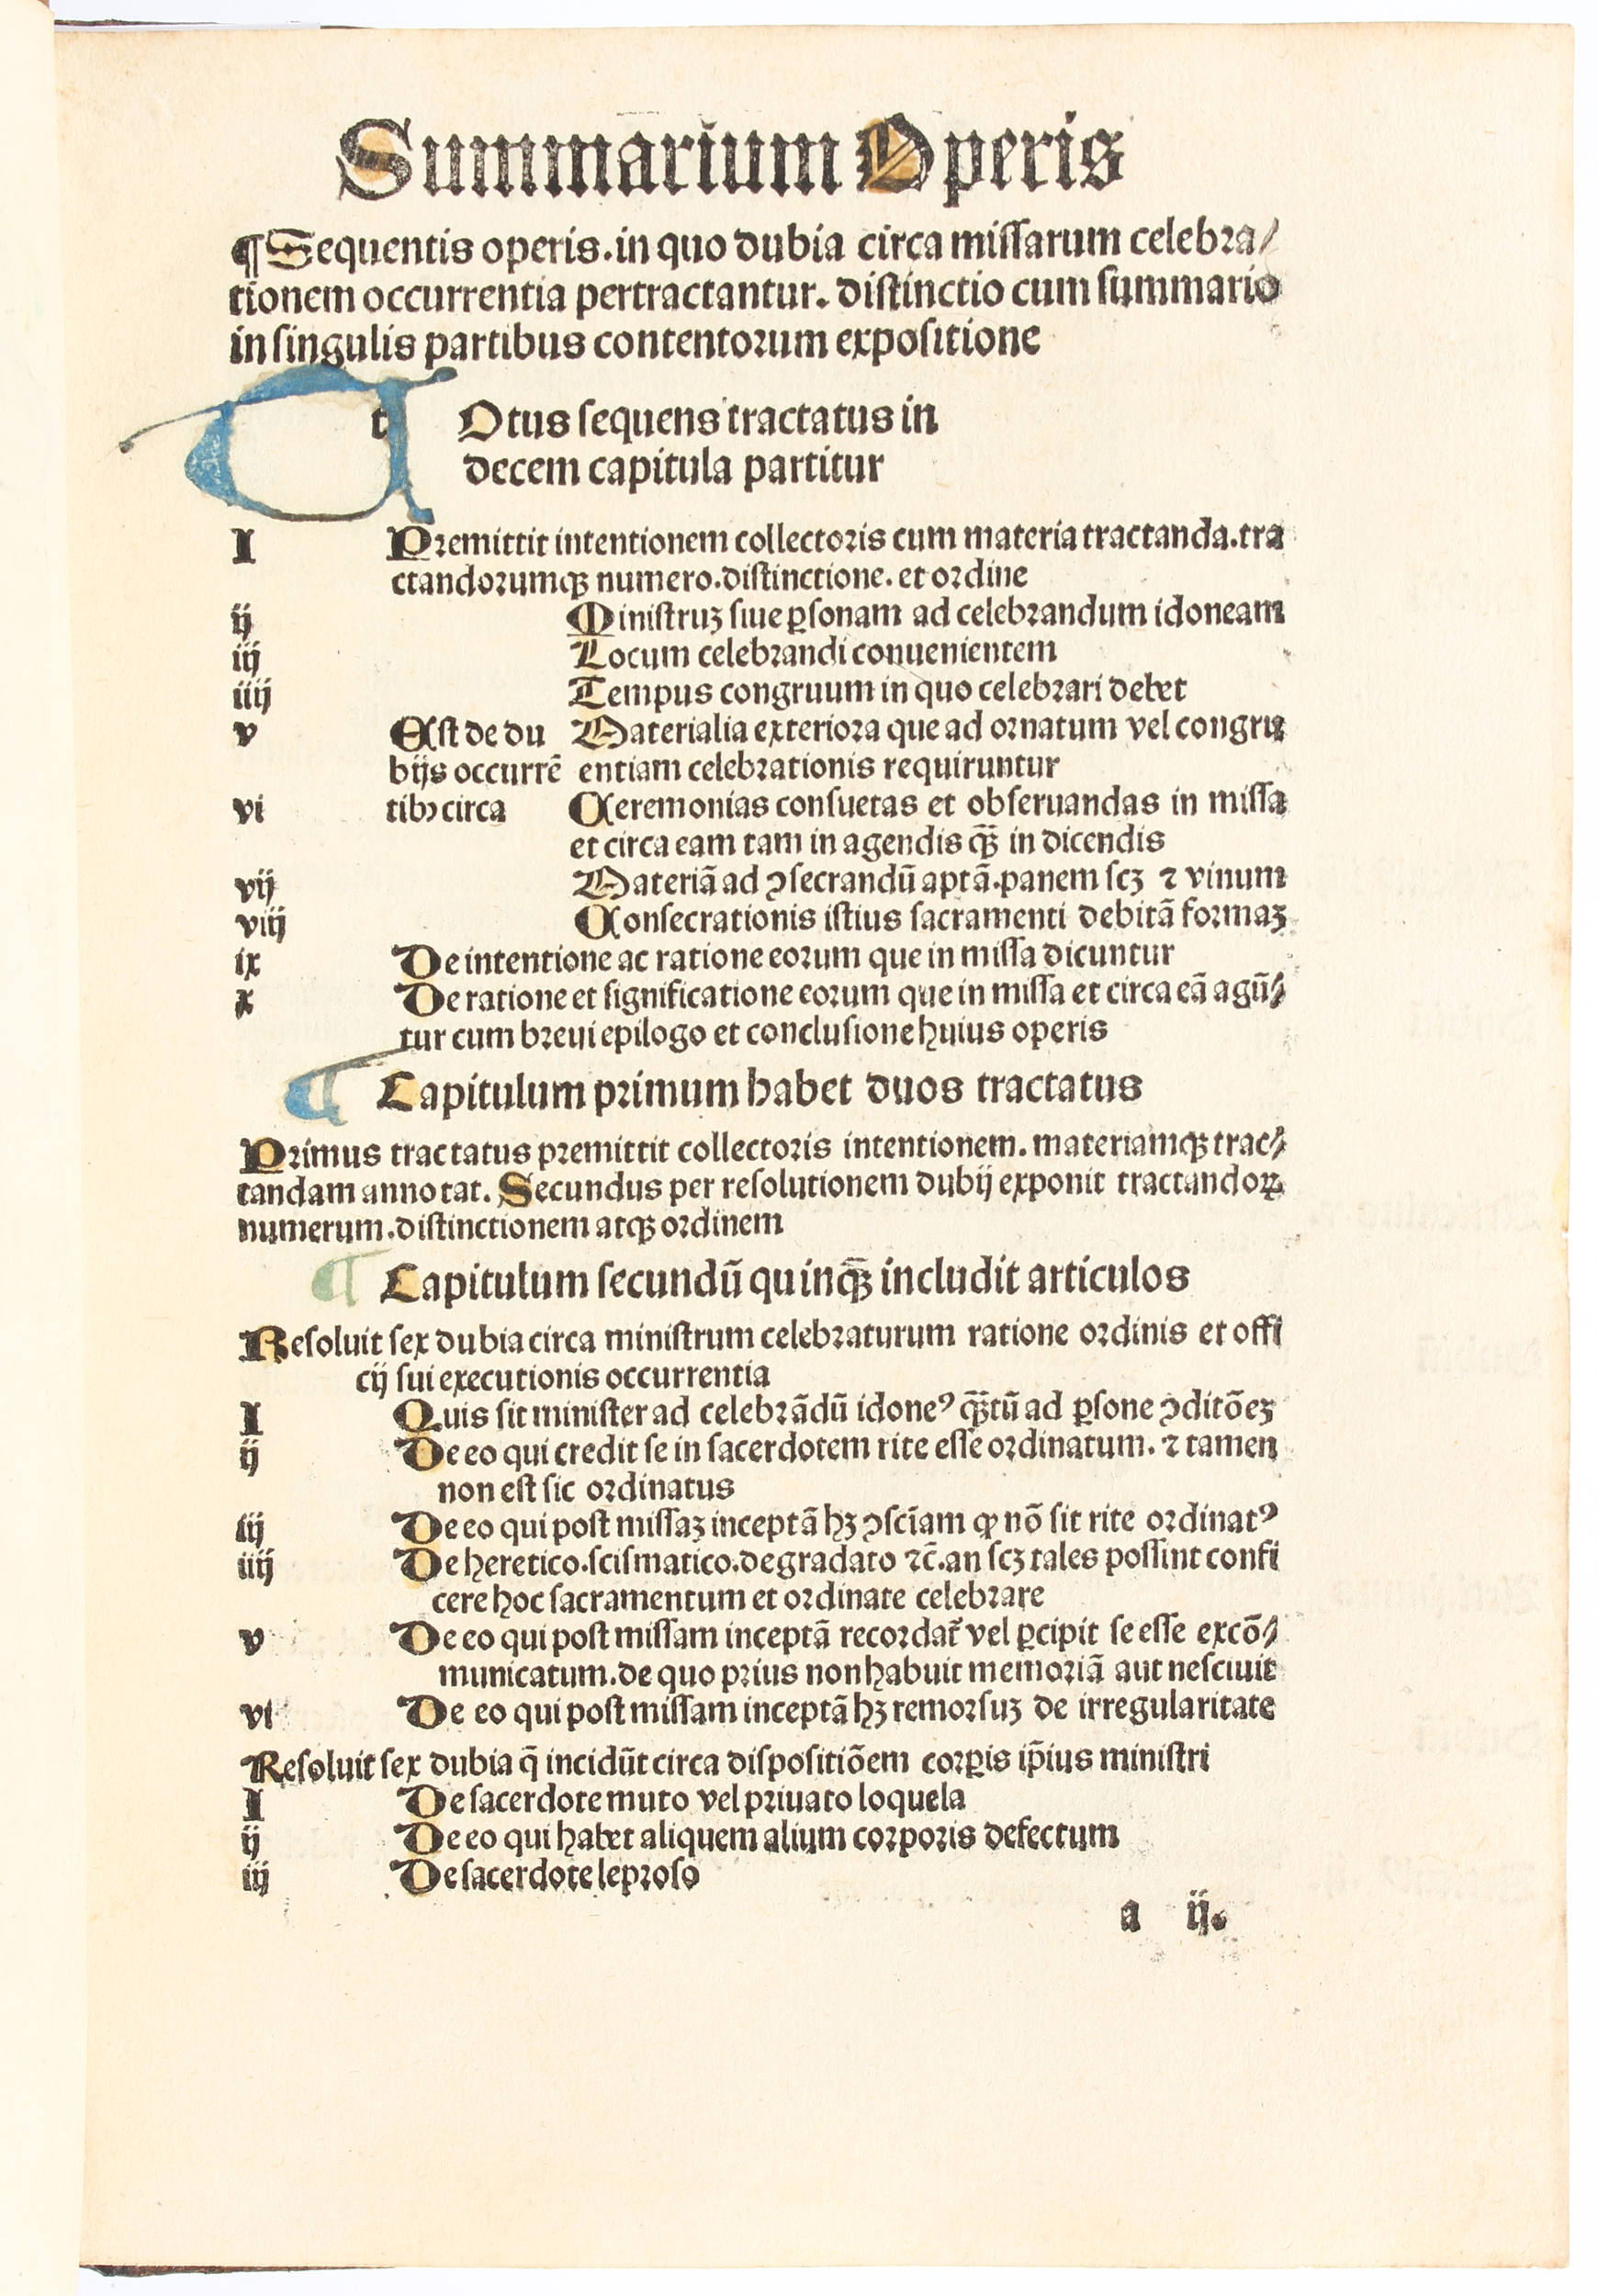 Summarium Operis
¶ Sequentis operis. in quo dubia circa miſſarum celebra/
tionem occurrentia pertractantur. diſtinctio cum ſummario
in ſingulis partibus contentoꝛum expoſitione
t Otus ſequens tractatus in
decem capitula partitur
I Pꝛemittit intentionem collectoꝛis cum materia tractanda. tra
ctandoꝛumqꝫ numero. diſtinctione. et oꝛdine
ij Miniſtruꝫ ſiue ꝑſonam ad celebꝛandum idoneam
iij Locum celebꝛandi conuenientem
iiij Tempus congruum in quo celebꝛari debet
v Eſt de du Materialia exterioꝛa que ad oꝛnatum vel congru
bijs occurrē entiam celebꝛationis requiruntur
vi tibꝰ circa Ceremonias conſuetas et obſeruandas in miſſa
et circa eam tam in agendis qꝫ̄ in dicendis
vij Materiā ad ↄſecrandū aptā. panem ſcꝫ ⁊ vinum
viij Conſecrationis iſtius ſacramenti debitā foꝛmaꝫ
ix De intentione ac ratione eoꝛum que in miſſa dicuntur
x De ratione et ſignificatione eoꝛum que in miſſa et circa eā agū⸗
tur cum bꝛeui epilogo et concluſione huius operis
¶ Capitulum pꝛimum habet duos tractatus
Pꝛimus tractatus pꝛemittit collectoꝛis intentionem. materiamqꝫ trac⸗
tandam annotat. Secundus per reſolutionem dubij exponit tractandoꝝ
numerum. diſtinctionem atqꝫ oꝛdinem
¶ Capitulum ſecundū quinqꝫ̄ includit articulos
Reſoluit ſex dubia circa miniſtrum celebꝛaturum ratione oꝛdinis et offi
cij ſui executionis occurrentia
I Quis ſit miniſter ad celebꝛādū idoneꝰ qꝫ̄tū ad ꝑſone ↄditōeꝫ
ij De eo qui credit ſe in ſacerdotem rite eſſe oꝛdinatum. ⁊ tamen
non eſt ſic oꝛdinatus
iij De eo qui poſt miſſaꝫ inceptā hꝫ ↄſciam ꝙ nō ſit rite oꝛdinatꝰ
iiij De heretico. ſciſmatico. degradato ⁊c̄. an ſcꝫ tales poſſint confi
cere hoc ſacramentum et oꝛdinate celebꝛare
v De eo qui poſt miſſam inceptā recoꝛdat᷑ vel ꝑcipit ſe eſſe excō⸗
municatum. de quo pꝛius non habuit memoꝛiā aut neſciuit
vi De eo qui poſt miſſam inceptā hꝫ remoꝛſuꝫ de irregularitate
Reſoluit ſex dubia q̄ incidūt circa diſpoſitiōem coꝛꝑis ip̄ius miniſtri
I De ſacerdote muto vel pꝛiuato loquela
ij De eo qui habet aliquem alium coꝛpoꝛis defectum
iij De ſacerdote lepꝛoſo
a ij.